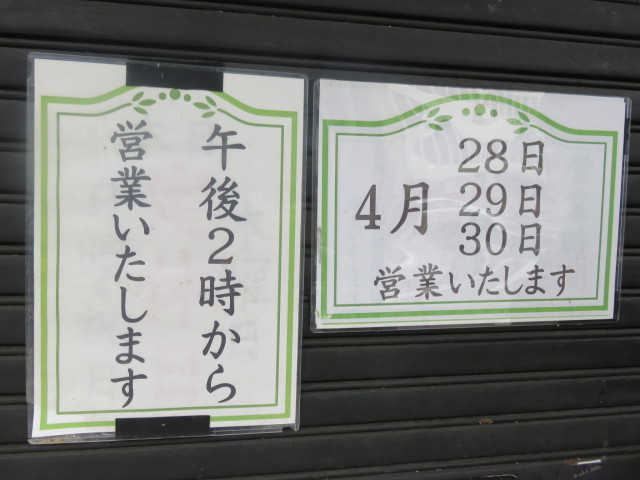 午後2時から
営業いたします
28日
4月 29日
30日
営業いたします